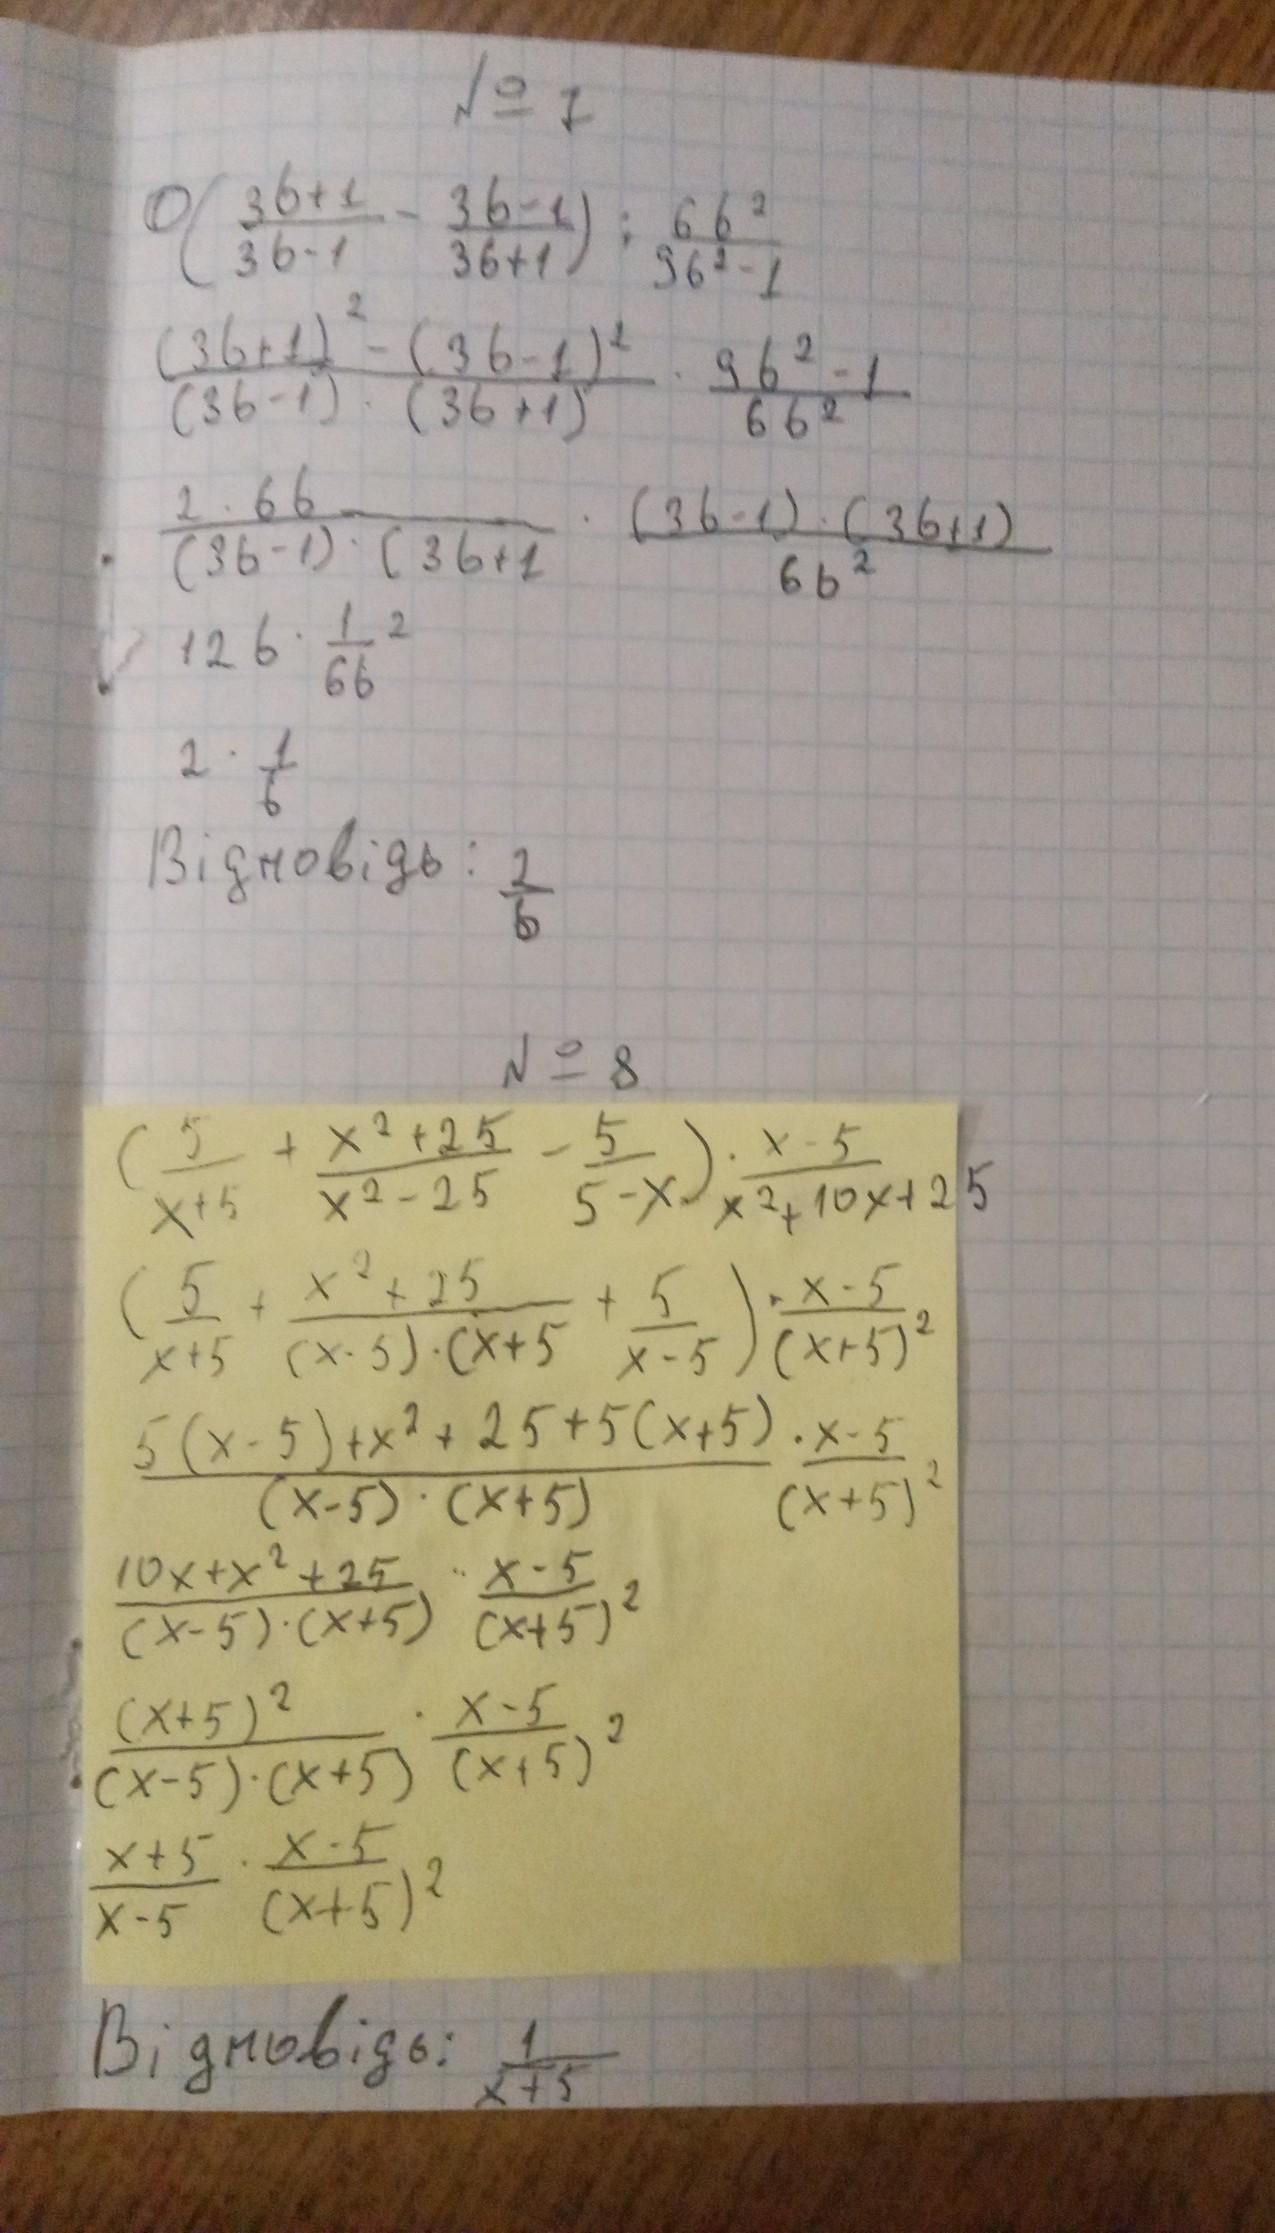 № 7
(3b+1/3b-1 - 3b-1/3b+1) : 6b²/9b²-1
(3b+1)² - (3b-1)²/(3b-1)·(3b+1) · 9b²-1/6b²
2·6b/(3b-1)·(3b+1 · (3b-1)·(3b+1)/6b²
12b · 1/6b ²
2 · 1/b
Відповідь: 2/b
№ 8
(5/x+5 + x²+25/x²-25 - 5/5-x) · x-5/x²+10x+25
(5/x+5 + x²+25/(x-5)·(x+5 + 5/x-5) · x-5/(x+5)²
5(x-5)+x²+25+5(x+5)/(x-5)·(x+5) · x-5/(x+5)²
10x+x²+25/(x-5)·(x+5) · x-5/(x+5)²
(x+5)²/(x-5)·(x+5) · x-5/(x+5)²
x+5/x-5 · x-5/(x+5)²
Відповідь: 1/x+5